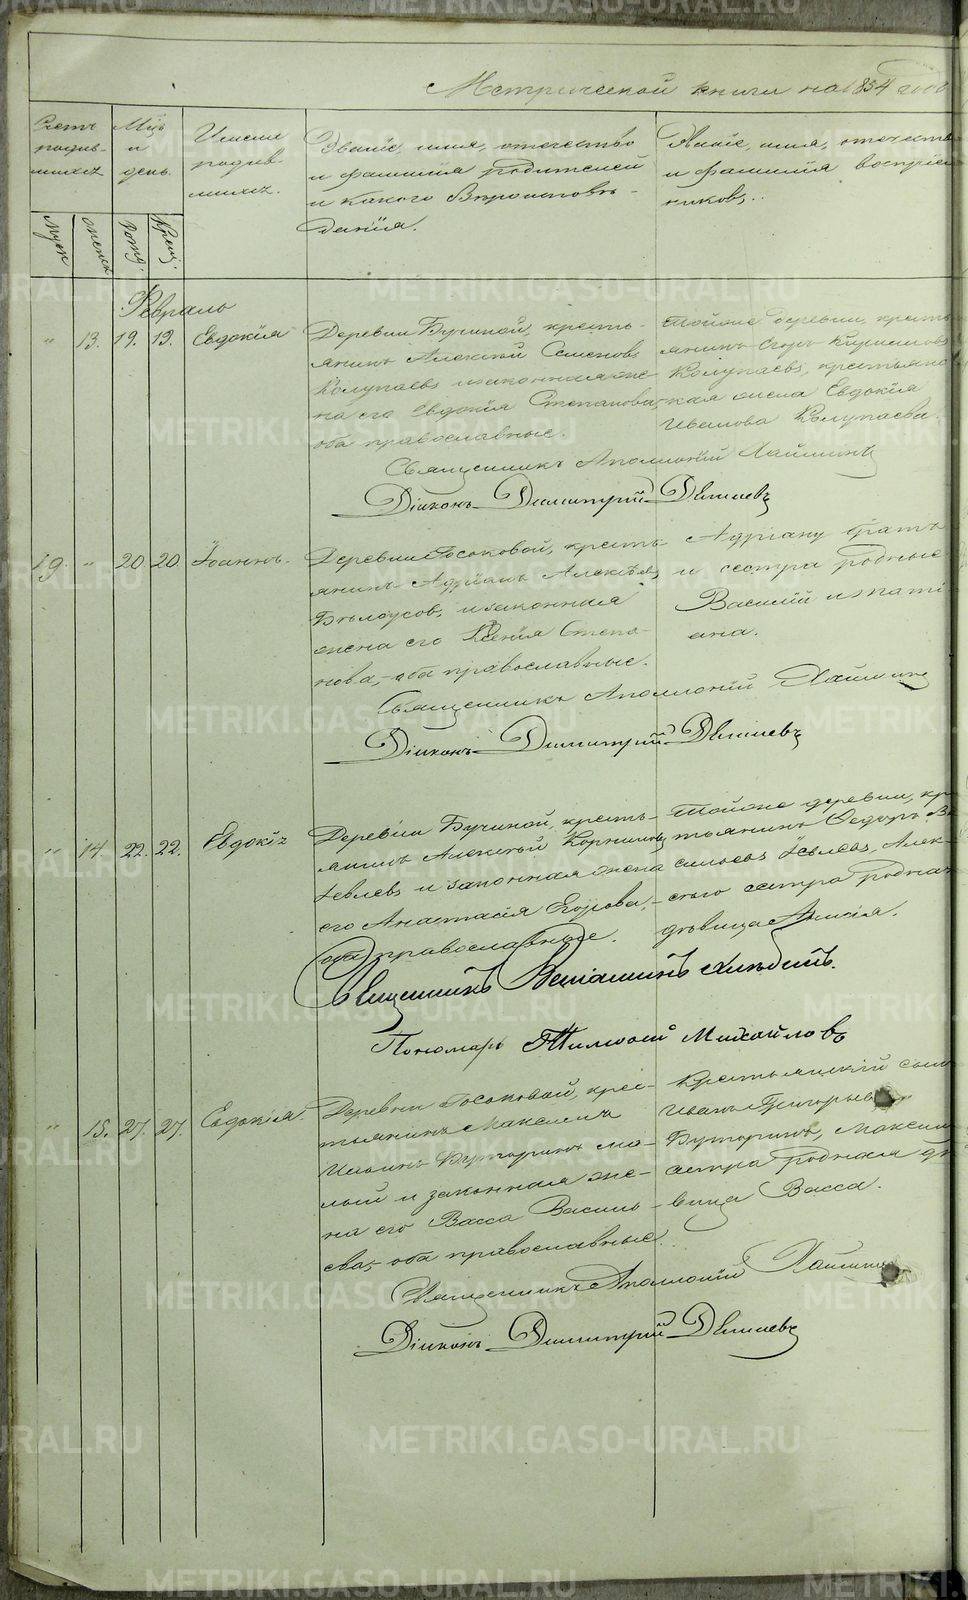 METRIKI.GASO-URAL.RU
Метрической книги на 1834 годъ
Счетъ родив-шихся
Мцъ и день.
Имена родив-шихъ.
Званіе, имя, отечество
и фамилія родителей
и какого Вѣроисповѣ-
данія.
Званіе, имя, отечество
и фамилія воспріем-
никовъ.
Муж
женск
рожд.
Крещ.
Февраль
" 13. 19. 19. Евдокія
Деревни Бучиной, кресть-
янинъ Алексѣй Семеновъ
Колупаевъ и законная же-
на его Евдокія Степанова,
оба православные.
Тойже деревни, кресть-
янинъ Егоръ Кириловъ
Колупаевъ, крестьянс-
кая жена Евдокія
Иванова Колупаева.
Священникъ Аполлоній
Діаконъ Димитрій
19. " 20 20. Іоаннъ.
Деревни кресть-
янинъ Адріанъ Алексѣевъ
Бѣлоусовъ, и законная
жена его Ксенія Степа-
нова, оба православные.
Адріану братъ
и сестра родные
Василій и Тати-
ана.
Священникъ Аполлоній
Діаконъ Димитрій
" 14. 22. 22. Евдокія
Деревни Бучиной, кресть-
янинъ Алексѣй Корниловъ
Іевлевъ и законная жена
его Анастасія Егорова,
оба православные.
Тойже деревни, кр
тьянинъ Ѳедоръ Ва
сильевъ Іевлевъ, Алек-
сѣю сестра родная
дѣвица
Священникъ Веніаминъ
Пономарь Тимоѳей Михайловъ
" 15. 27. 27. Евдокія.
Деревни крес-
тьянинъ Максимъ
Ильинъ Бутаринъ ма-
лый и законная же-
на его Васса Василь-
ева, оба православные.
Крестьянскій сынъ
Иванъ Григорьев
Бутаринъ, Максим
сестра родная дѣ
вица Васса.
Священникъ Аполлоній
Діаконъ Димитрій